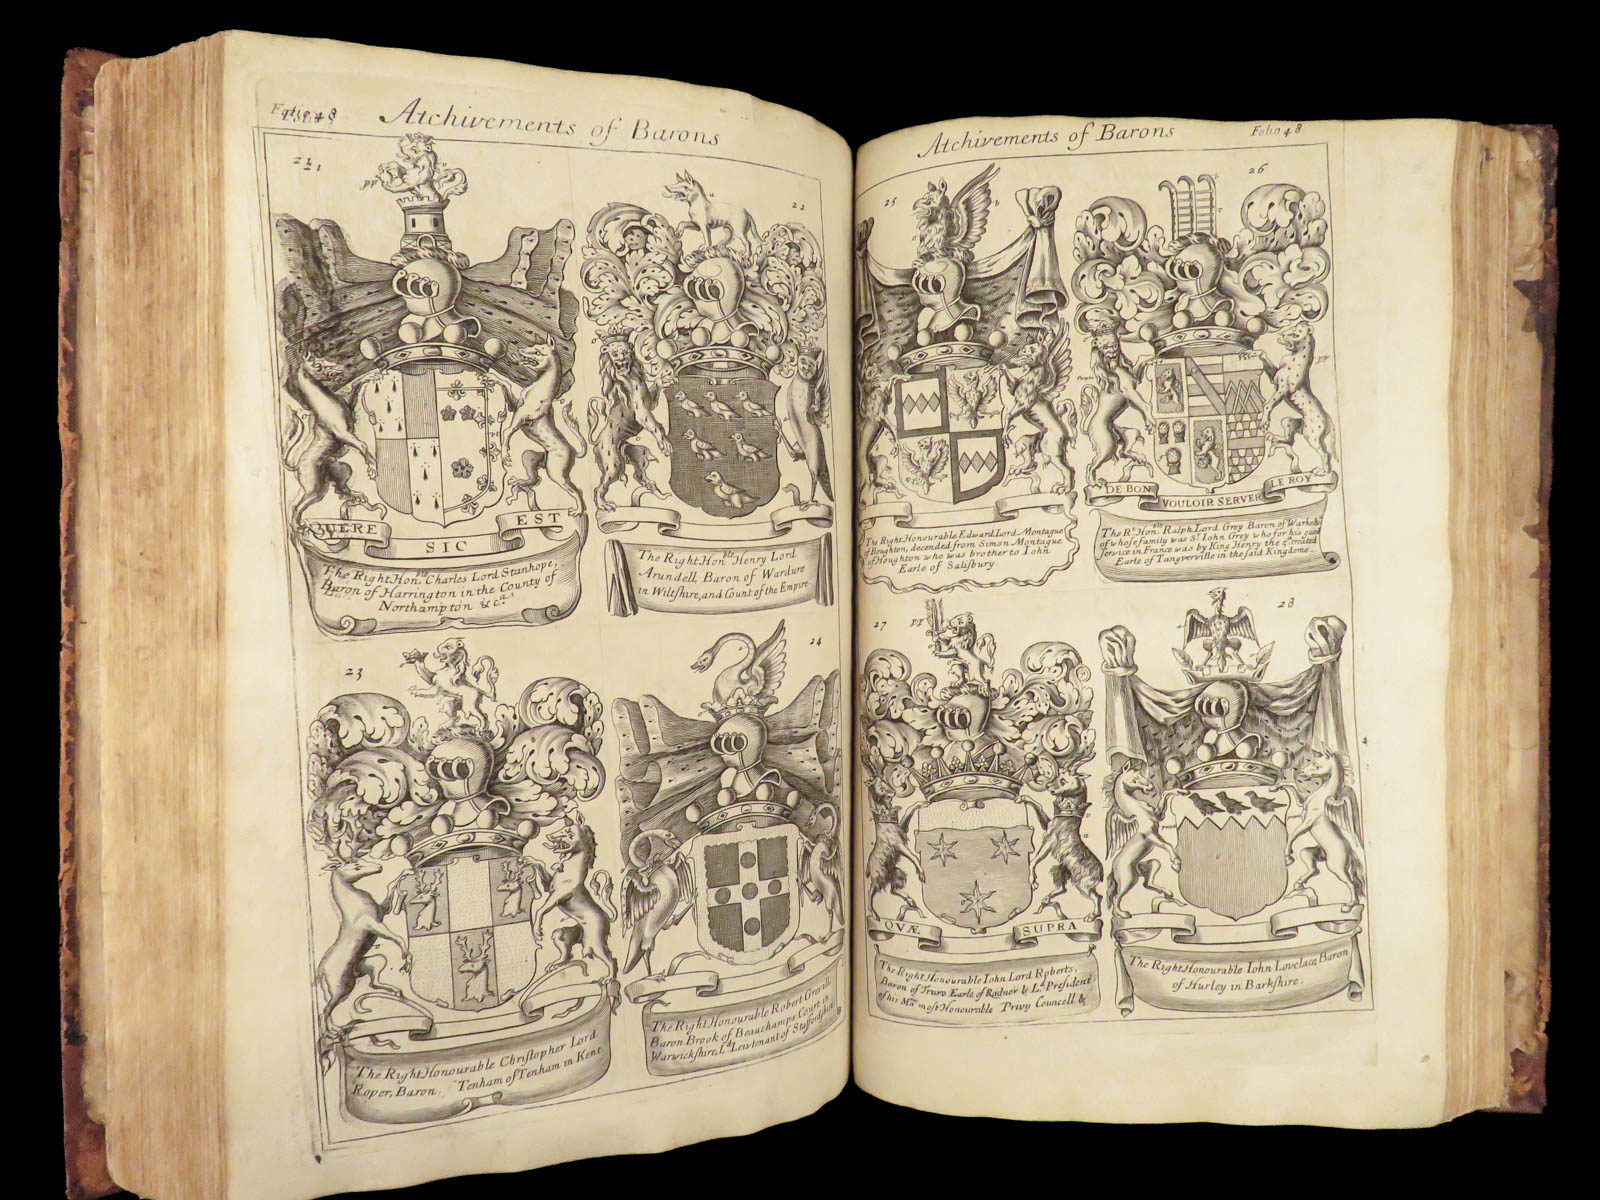 Folio 48
Atchivements of Barons
21
22
QVERE SIC EST
The Right Hon.ble Charles Lord Stanhope,
Baron of Harrington in the County of
Northampton &c.a
The Right Hon.ble Henry Lord
Arundell, Baron of Wardure
in Wiltshire, and Count of the Empire
23
24
The Right Honourable Christopher Lord
Roper, Baron. Tenham of Tenham in Kent
The Right Honourable Robert Grevill,
Baron Brook of Beauchamps Court in
Warwickshire, Ld. Leiwtenant of Staffordshire
Atchivements of Barons
Folio 48
25
26
The Right Honourable Edward Lord Montague
of Boughton, decended from Simon Montague
of Houghton who was brother to Iohn
Earle of Salisbury.
DE BON VOULOIR SERVER LE ROY
The Rt. Hon.ble Ralph Lord Grey Baron of Warke
of whose family was Sr. Iohn Grey who for his good
Service in France was by King Henry the 5th. created
Earle of Tangverville in the said Kingdome.
27
28
QVÆ SUPRA
The Right Honourable Iohn Lord Roberts,
Baron of Truro Earle of Radnor & Ld. President
of his Ma. most Honourable Privy Councell &
The Right Honourable Iohn Lovelace, Baron
of Hurley in Barkshire.